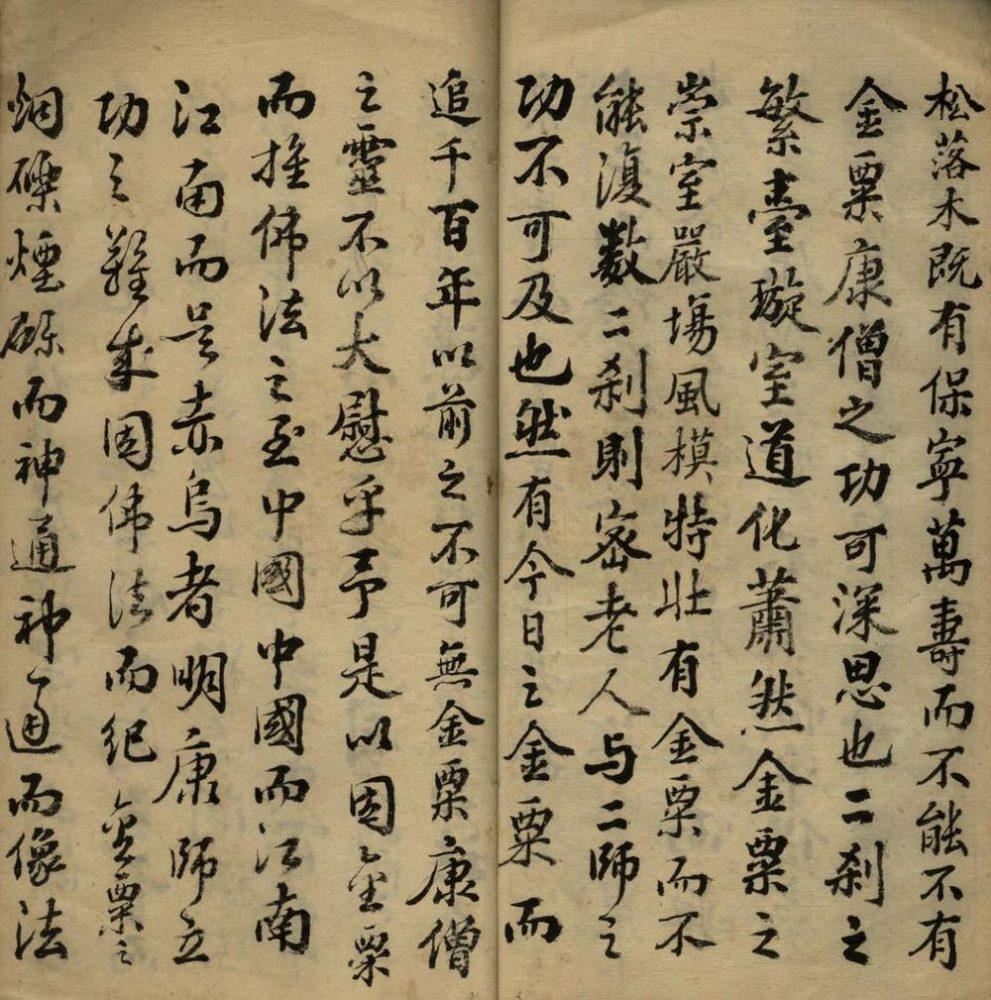 松落木既有保寧萬壽而不能不有
金粟康僧之功可深思也二刹之
繁臺璇室道化蕭然金粟之
崇室嚴場風模特壯有金粟而不
能復数二刹則密老人与二師之
功不可及也然有今日之金粟而
追千百年以前之不可無金粟康僧
之靈不以大慰乎予是以因金粟
而推佛法之至中國中國而江南
江南而吴赤烏者明康師立
功之難因佛法而紀金粟之
礫煙而神通神通而像法